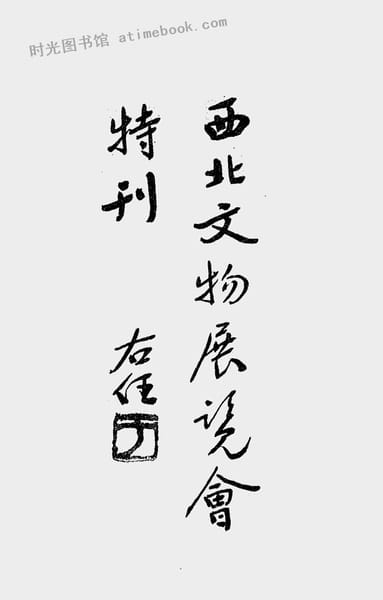 时光图书馆 atimebook.com
西北文物展覽會
特刊
右任
于